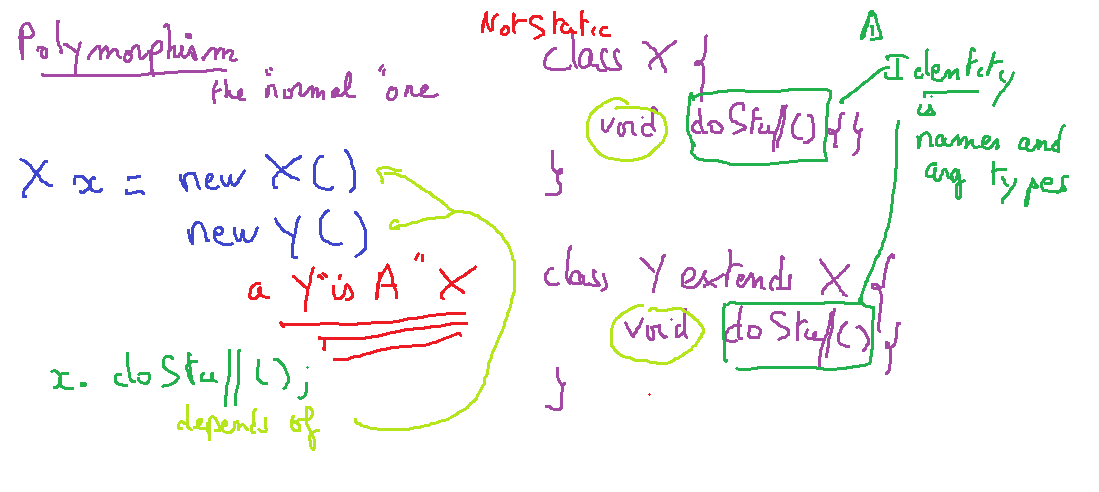 Polymorphism
the normal "one
X x = new X()
new Y()
a Y "is A" X
x. doStuff();
depends of
Not Static
class X {
void doStuff() {}
}
class Y extends X {
void doStuff() }
}
Identity
is
names and
arg types